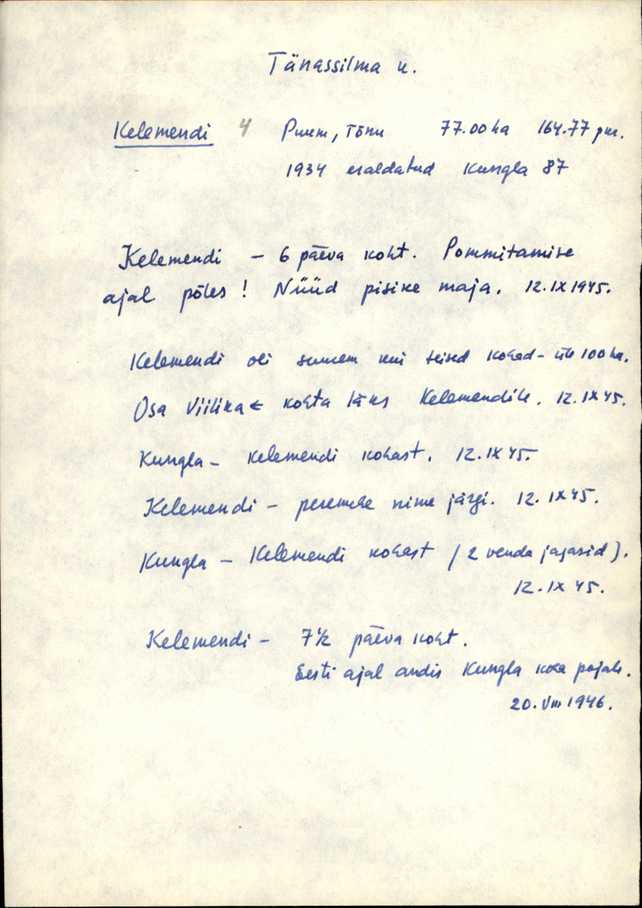 Tänassilma k.
Kelemendi 4 Puum, Tõnu 77.00 ha 164.77 pm.
1934 eraldatud Kungla 87
Kelemendi – 6 päeva koht. Pommitamise
ajal põles! Nüüd pisike maja. 12.IX 1945.
Kelemendi oli suurem kui teised kohad – üle 100 ha.
Osa Viilika kohta läks Kelemendile. 12.IX 45.
Kungla – Kelemendi kohast. 12.IX 45.
Kelemendi – peremehe nime järgi. 12.IX 45.
Kungla – Kelemendi kohast (2 venda jagasid).
12.IX 45.
Kelemendi – 7½ päeva koht.
Eesti ajal andis Kungla koha pojale.
20.VIII 1946.